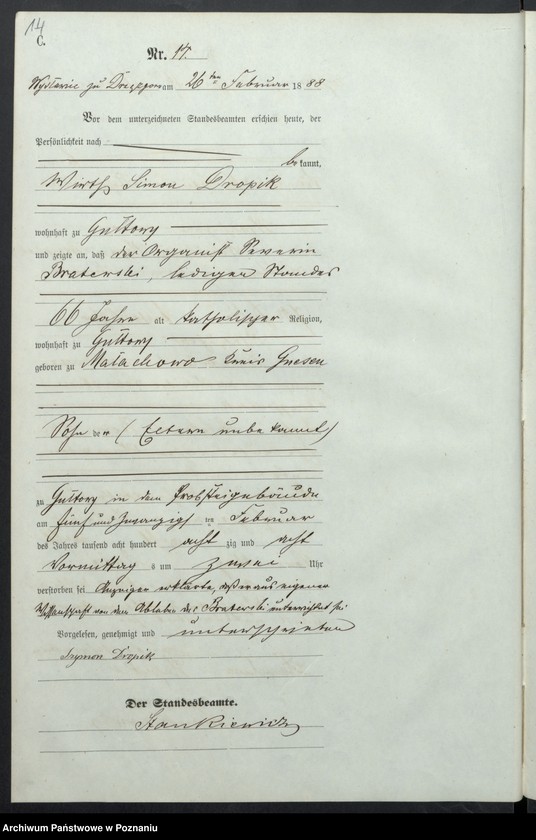 14
C.
Nr. 17.
zu am 26ten Februar 1888
Vor dem unterzeichneten Standesbeamten erschien heute, der
Persönlichkeit nach
bekannt,
Wirth Simon Dropik
wohnhaft zu Gultowy
und zeigte an, daß der Organist Severin
Braterski, ledigen Standes
66 Jahre alt katholischer Religion,
wohnhaft zu Gultowy
geboren zu Malachowo Kreis Gnesen
Sohn der (Eltern unbekannt)
zu Gultowy in dem Probsteigebäude
am fünf und zwanzigsten Februar
des Jahres tausend acht hundert achtzig und acht
Vormittags um zwei Uhr
verstorben sei Anzeiger erklärte, daß er aus eigener
Wissenschaft von dem Ableben des Braterski unterrichtet sei
Vorgelesen, genehmigt und unterschrieben
Szymon Dropik
Der Standesbeamte.
Stankiewicz
Archiwum Państwowe w Poznaniu